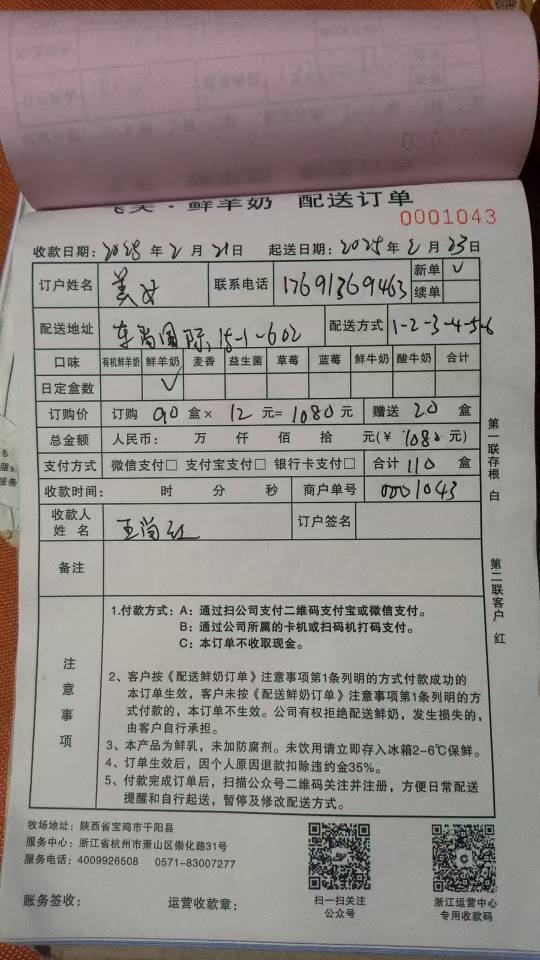 ·鲜羊奶 配送订单
0001043
收款日期：2025年2月21日 起送日期：2025年2月23日
订户姓名 美女 联系电话 17691369463 新单 √
续单
配送地址 车尚国际,15-1-602 配送方式 1-2-3-4-5-6
口味 有机鲜羊奶 鲜羊奶 麦香 益生菌 草莓 蓝莓 鲜牛奶 酸牛奶 合计
日定盒数 √
订购价 订购 90 盒× 12 元= 1080 元 赠送 20 盒
总金额 人民币： 万 仟 佰 拾 元(￥ 1080 元)
支付方式 微信支付□ 支付宝支付□ 银行卡支付□ 合计 110 盒
收款时间： 时 分 秒 商户单号 0001043
收款人姓名 王尚红 订户签名
备注
第一联存根 白
第二联客户 红
注意事项
1.付款方式：A：通过扫公司支付二维码支付宝或微信支付。
B：通过公司所属的卡机或扫码机打码支付。
C：本订单不收取现金。
2、客户按《配送鲜奶订单》注意事项第1条列明的方式付款成功的
本订单生效，客户未按《配送鲜奶订单》注意事项第1条列明的方
式付款的，本订单不生效。公司有权拒绝配送鲜奶，发生损失的，
由客户自行承担。
3、本产品为鲜乳，未加防腐剂。未饮用请立即存入冰箱2-6℃保鲜。
4、订单生效后，因个人原因退款扣除违约金35%。
5、付款完成订单后，扫描公众号二维码关注并注册，方便日常配送
提醒和自行起送，暂停及修改配送方式。
牧场地址：陕西省宝鸡市千阳县
服务中心：浙江省杭州市萧山区崇化路31号
服务电话：4009926508 0571-83007277
账务签收： 运营收款章：
扫一扫关注
公众号
浙江运营中心
专用收款码